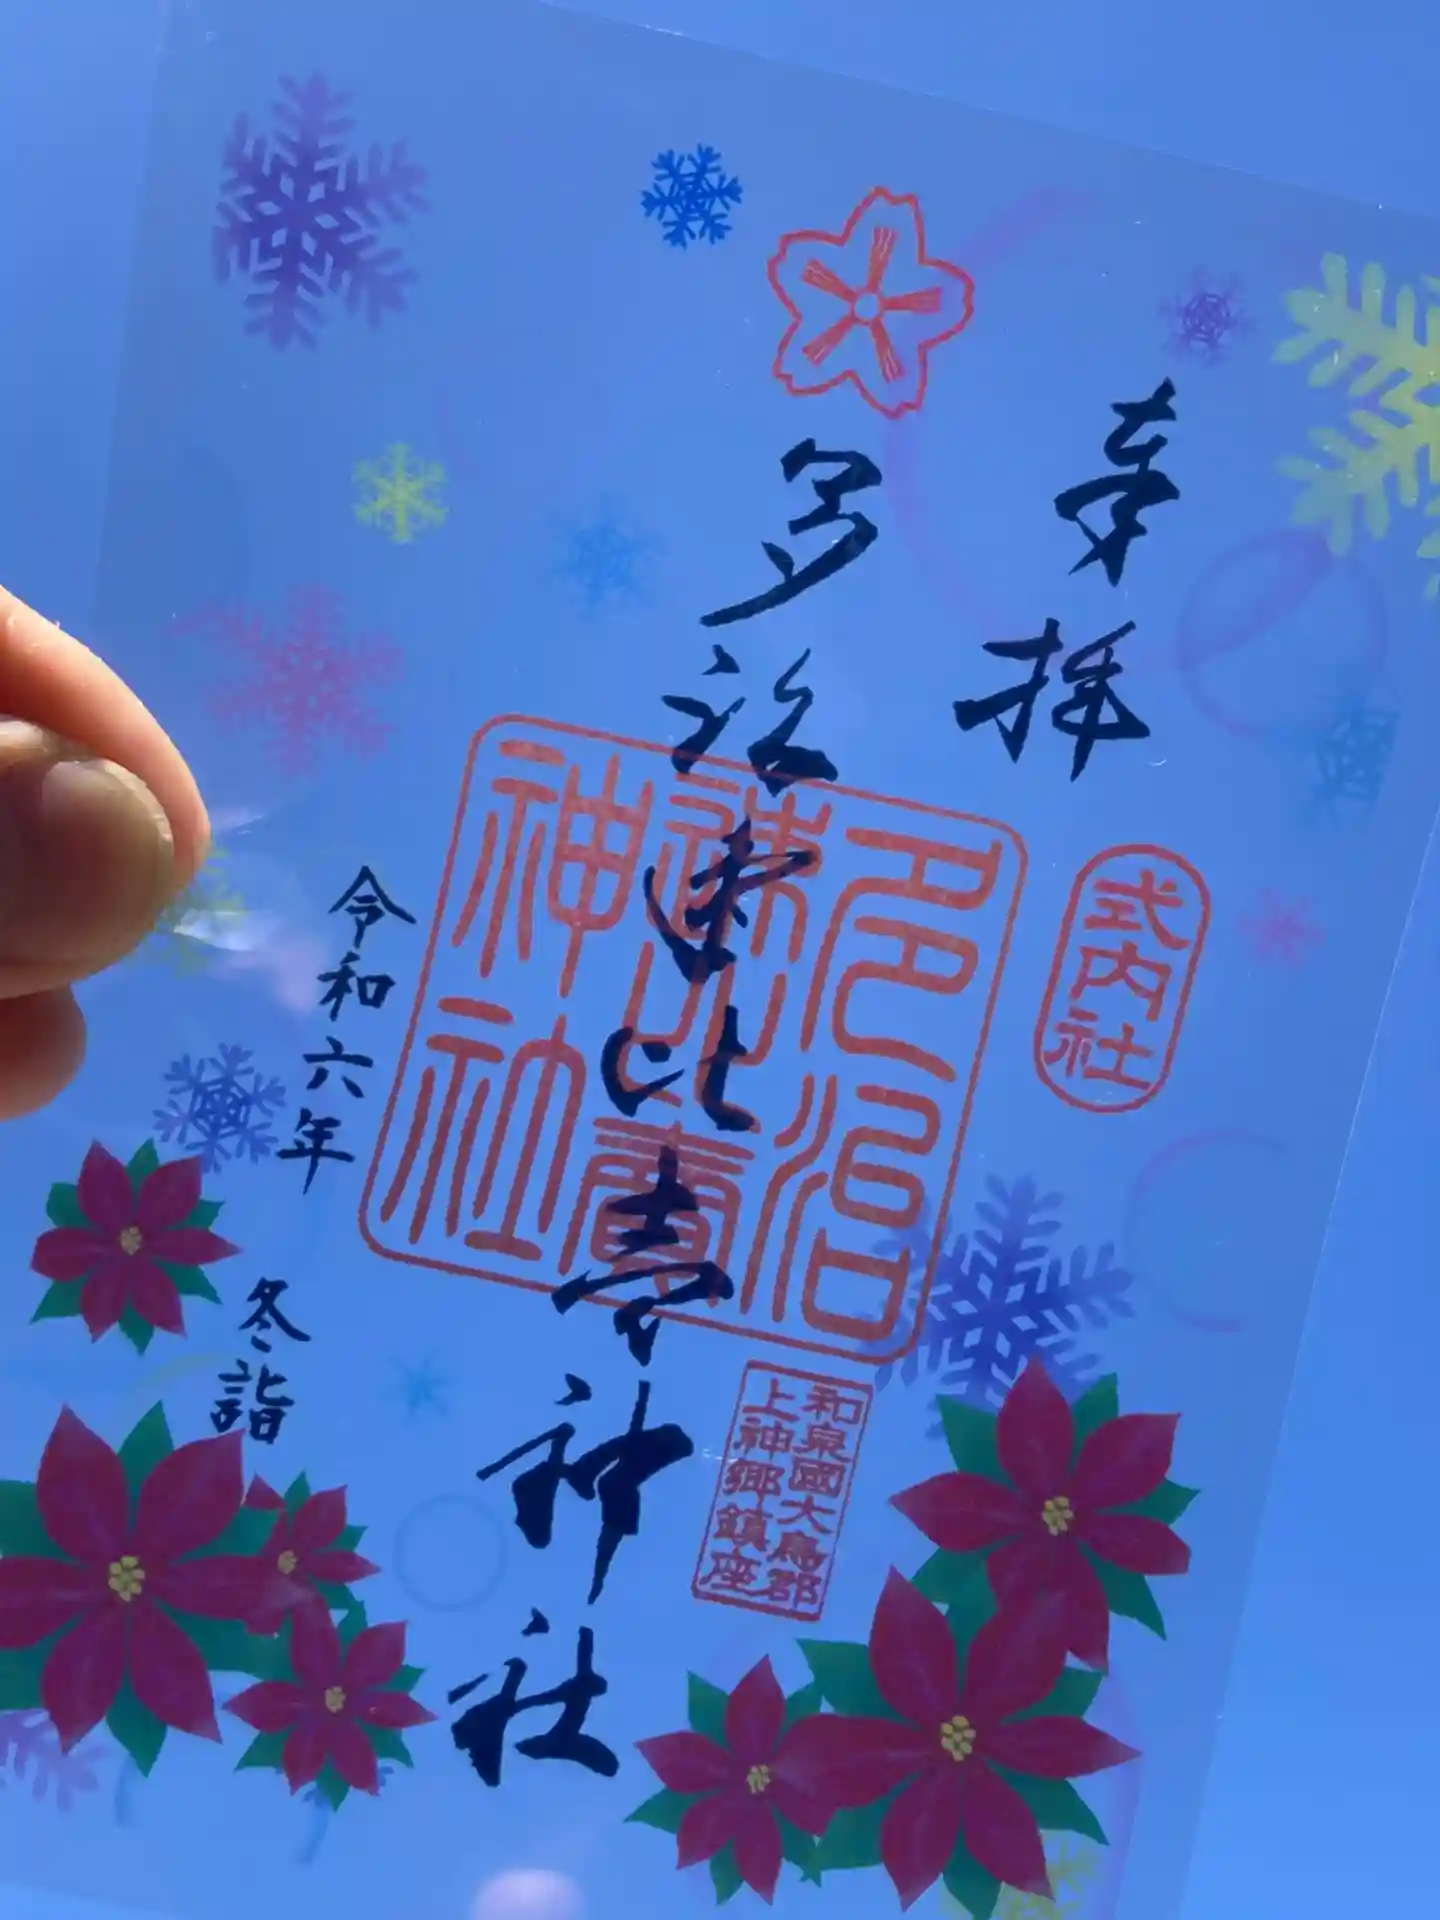 奉拝
式内社
多治速比売神社
多治速比賣神社
和泉國大鳥郡
上神郷鎮座
令和六年
冬詣